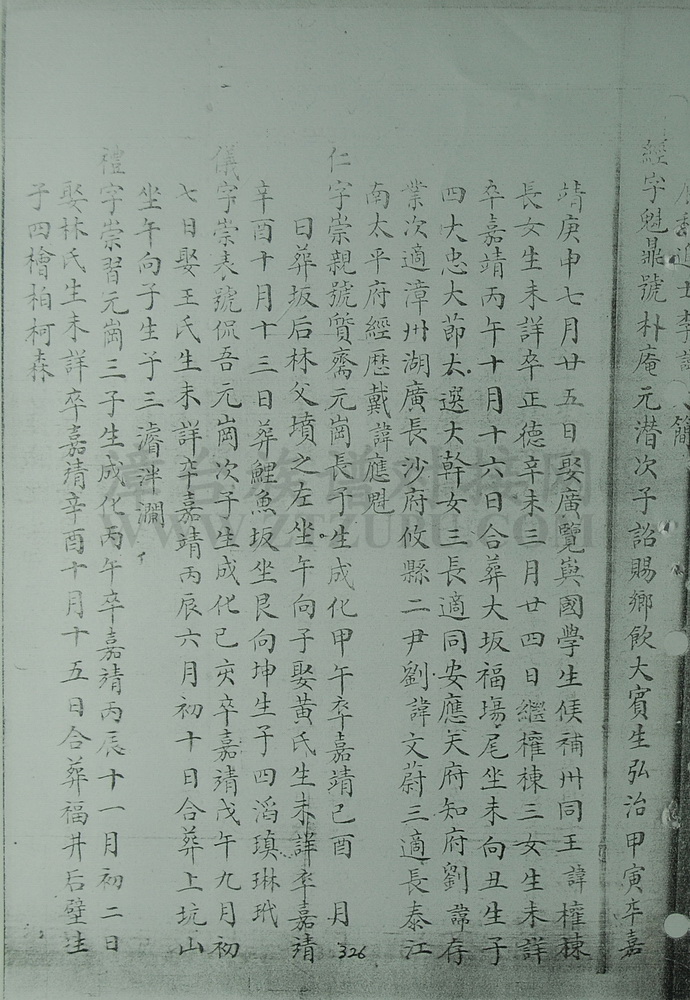 經字魁鼎號朴庵元潛次子詔賜鄉飲大賓生弘治甲寅卒嘉
靖庚申七月廿五日娶廣覽與國學生侯補州同王諱權棟
長女生未詳卒正德辛未三月廿四日繼權棟三女生未詳
卒嘉靖丙午十月十六日合葬大坂福塲尾坐未向丑生子
四大忠大節大選大幹女三長適同安應天府知府劉諱存
業次適漳州湖廣長沙府攸縣二尹劉諱文蔚三適長泰江
南太平府經歷戴諱應魁
仁字崇親號質齋元崗長子生成化甲午卒嘉靖己酉 月
日葬坂后林父墳之左坐午向子娶黃氏生未詳卒嘉靖
辛酉十月十三日葬鯉魚坂坐艮向坤生子四滔瑱琳玳
儀字崇表號侃吾元崗次子生成化己亥卒嘉靖戊午九月初
七日娶王氏生未詳卒嘉靖丙辰六月初十日合葬上坑山
坐午向子生子三濬泮瀾
禮字崇習元崗三子生成化丙午卒嘉靖丙辰十一月初二日
娶林氏生未詳卒嘉靖辛酉十月十五日合葬福井后壁生
子四檜柏柯森
326